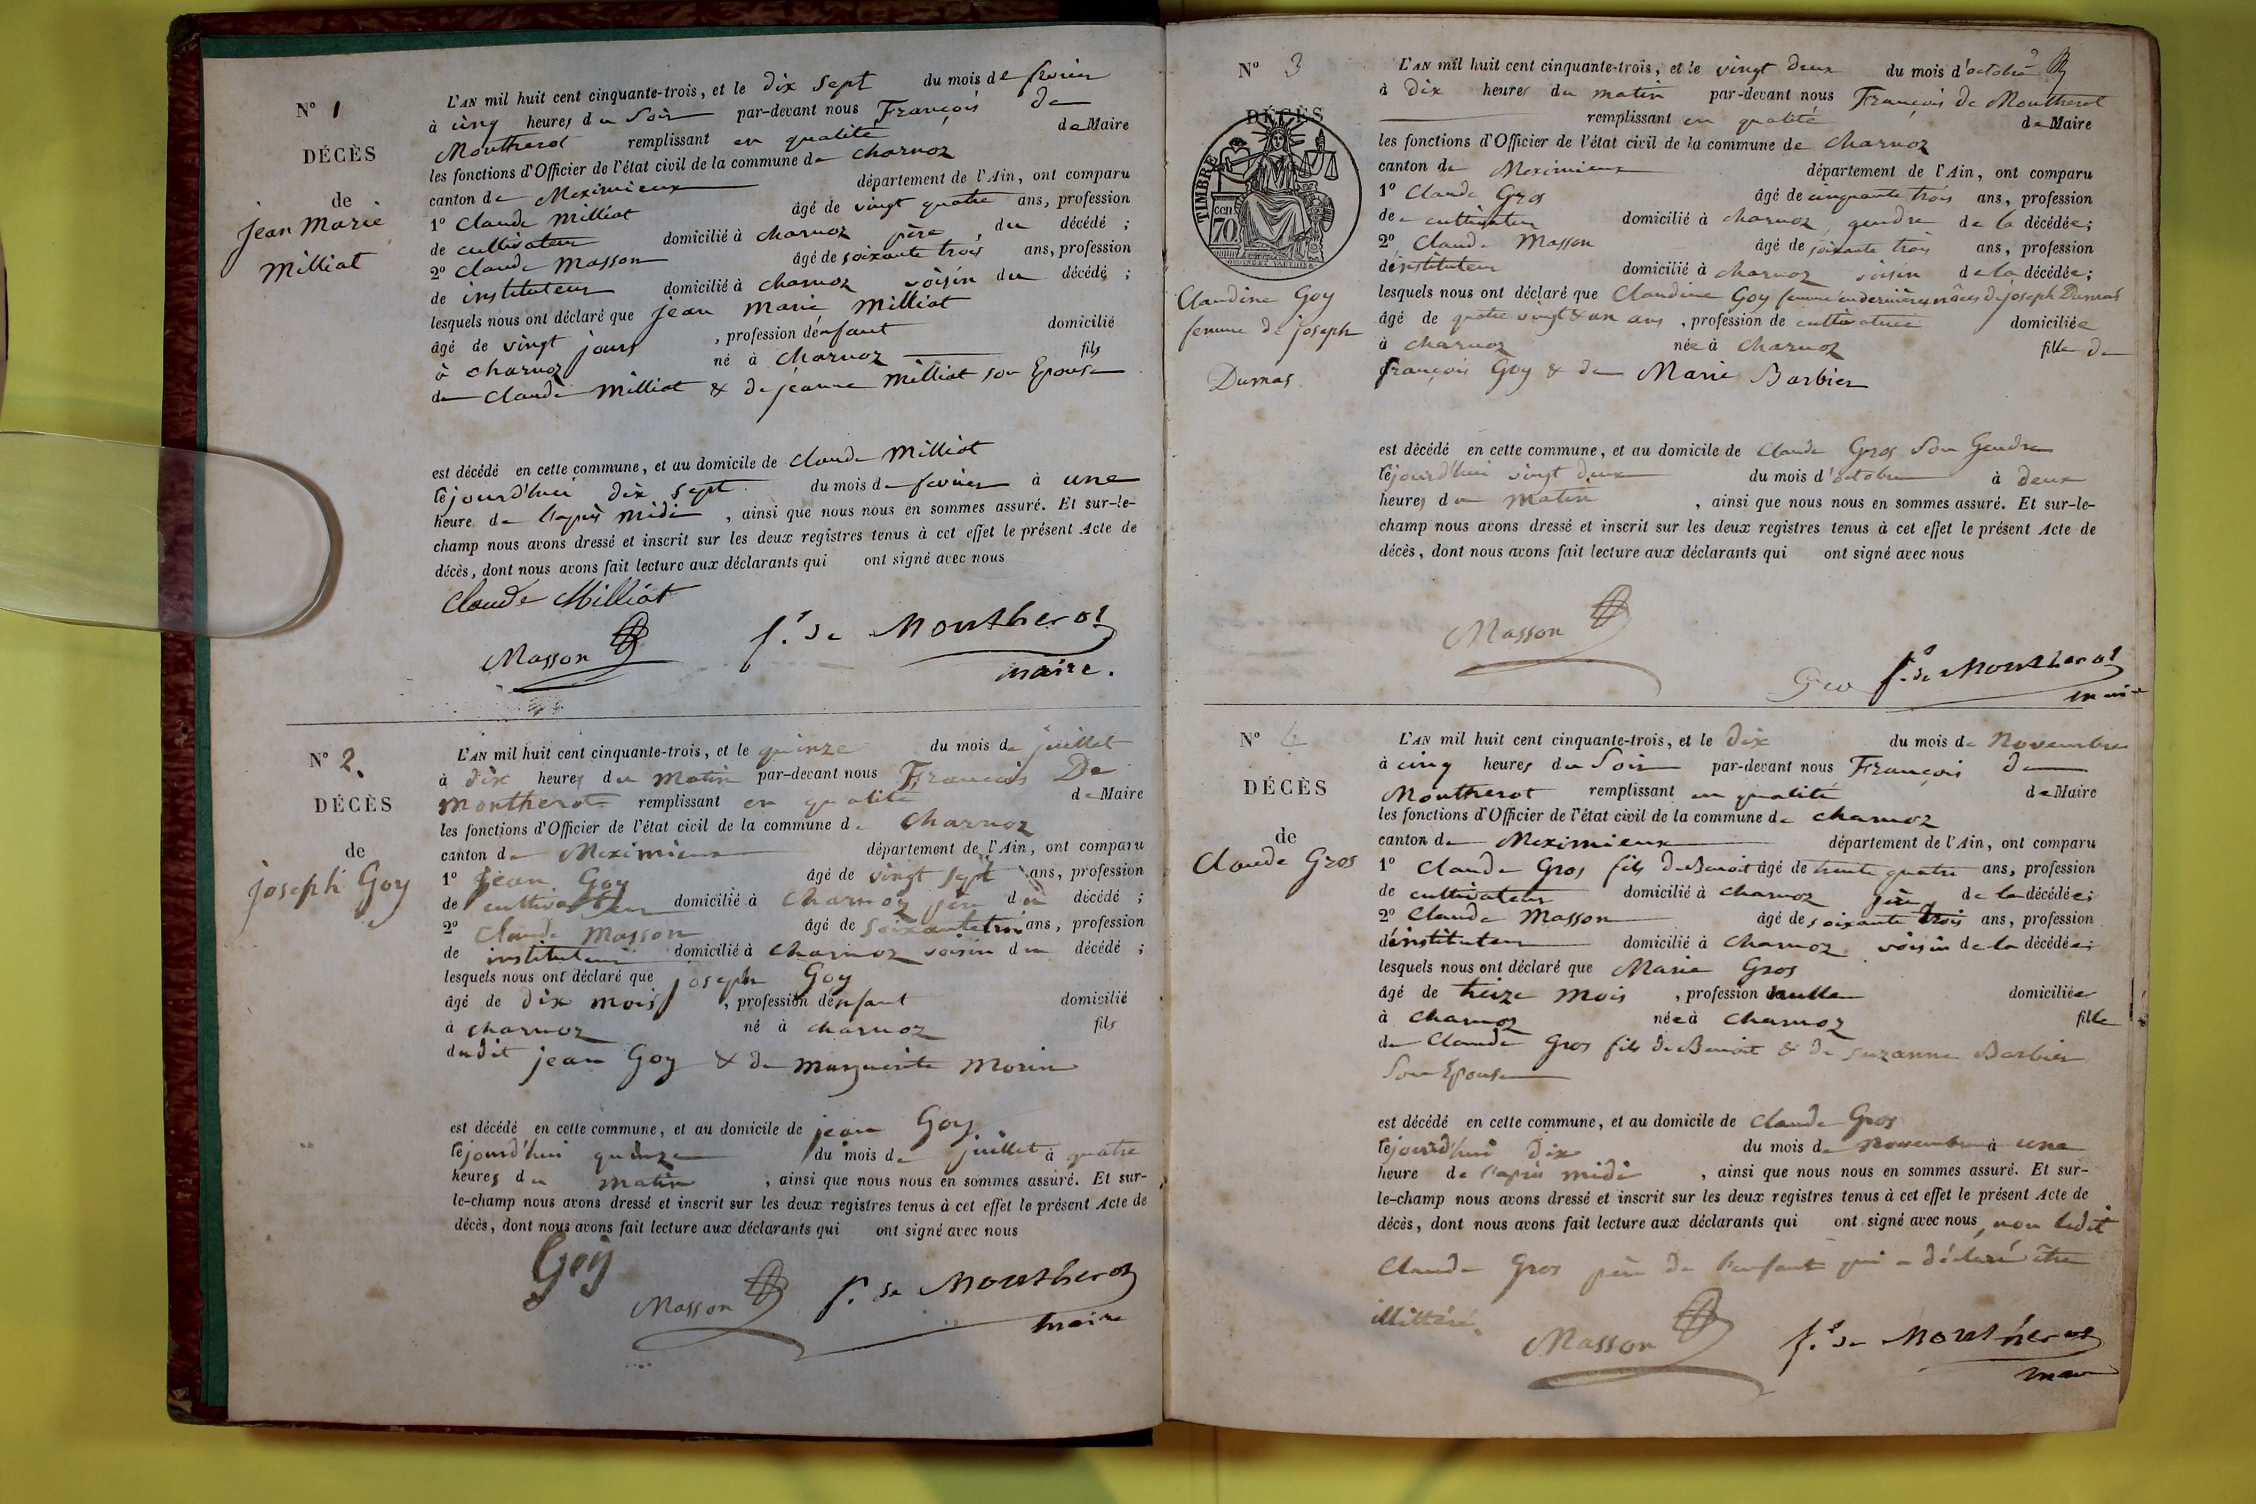 N° 1
DÉCÈS
de
jean Marie
Milliat
L'AN mil huit cent cinquante-trois, et le dix sept du mois de fevrier
à cinq heures du Soir par-devant nous François de
Montherot remplissant en qualité de Maire
les fonctions d'Officier de l'état civil de la commune de charnoz
canton de Meximieux département de l'Ain, ont comparu
1° Claude Milliat âgé de vingt quatre ans, profession
de cultivateur domicilié à charnoz père, du décédé ;
2° Claude Masson âgé de soixante trois ans, profession
de instituteur domicilié à charnoz voisin du décédé ;
lesquels nous ont déclaré que jean Marie Milliat
âgé de vingt jours, profession d'enfant domicilié
à charnoz né à charnoz fils
de Claude Milliat & de jeanne Milliat son Epouse
est décédé en cette commune, et au domicile de Claude Milliat
lejourd'hui dix sept du mois de fevrier à une
heure de l'après midi, ainsi que nous nous en sommes assuré. Et sur-le-
champ nous avons dressé et inscrit sur les deux registres tenus à cet effet le présent Acte de
décès, dont nous avons fait lecture aux déclarants qui ont signé avec nous
Claude Milliat
Masson f.s de Montherot
maire.
N° 2.
DÉCÈS
de
joseph Goy
L'AN mil huit cent cinquante-trois, et le quinze du mois de juillet
à dix heures du Matin par-devant nous François De
Montherot remplissant en qualité de Maire
les fonctions d'Officier de l'état civil de la commune de charnoz
canton de Meximieux département de l'Ain, ont comparu
1° jean Goy âgé de vingt sept ans, profession
de cultivateur domicilié à charnoz père du décédé ;
2° Claude Masson âgé de soixante trois ans, profession
de instituteur domicilié à charnoz voisin du décédé ;
lesquels nous ont déclaré que joseph Goy
âgé de dix mois, profession d'enfant domicilié
à charnoz né à charnoz fils
dudit jean Goy & de marguerite Morin
est décédé en cette commune, et au domicile de jean Goy
lejourd'hui quinze du mois de juillet à quatre
heures du matin, ainsi que nous nous en sommes assuré. Et sur-
le-champ nous avons dressé et inscrit sur les deux registres tenus à cet effet le présent Acte de
décès, dont nous avons fait lecture aux déclarants qui ont signé avec nous
Goy
Masson f. de Montherot
maire
N° 3
DÉCÈS
TIMBRE
70 cen
Claudine Goy
femme de joseph
Dumas
L'AN mil huit cent cinquante-trois, et le vingt deux du mois d'octobre
à dix heures du matin par-devant nous François de Montherot
remplissant en qualité de Maire
les fonctions d'Officier de l'état civil de la commune de charnoz
canton de Meximieux département de l'Ain, ont comparu
1° Claude Gros âgé de cinquante trois ans, profession
de cultivateur domicilié à charnoz gendre de la décédée ;
2° Claude Masson âgé de soixante trois ans, profession
d'instituteur domicilié à charnoz voisin de la décédée ;
lesquels nous ont déclaré que Claudine Goy femme en dernières nôces de joseph Dumas
âgé de quatre vingt & un ans, profession de cultivatrice domiciliée
à charnoz née à charnoz fille de
françois Goy & de Marie Barbier
est décédé en cette commune, et au domicile de Claude Gros son Gendre
lejourd'hui vingt deux du mois d'octobre à deux
heures du matin, ainsi que nous nous en sommes assuré. Et sur-le-
champ nous avons dressé et inscrit sur les deux registres tenus à cet effet le présent Acte de
décès, dont nous avons fait lecture aux déclarants qui ont signé avec nous
Masson
f.s de Montherot
N° 4
DÉCÈS
de
Claude Gros
L'AN mil huit cent cinquante-trois, et le dix du mois de Novembre
à cinq heures du Soir par-devant nous François de
Montherot remplissant en qualité de Maire
les fonctions d'Officier de l'état civil de la commune de charnoz
canton de Meximieux département de l'Ain, ont comparu
1° Claude Gros fils de Benoit âgé de trente quatre ans, profession
de cultivateur domicilié à charnoz père, de la décédée ;
2° Claude Masson âgé de soixante trois ans, profession
d'instituteur domicilié à charnoz voisin de la décédée ;
lesquels nous ont déclaré que Marie Gros
âgé de treize mois, profession nulle domiciliée
à charnoz née à charnoz fille
de Claude Gros fils de Benoit & de suzanne Barbier
Son Epouse
est décédé en cette commune, et au domicile de Claude Gros
lejourd'hui dix du mois de novembre à une
heure de l'après midi, ainsi que nous nous en sommes assuré. Et sur-
le-champ nous avons dressé et inscrit sur les deux registres tenus à cet effet le présent Acte de
décès, dont nous avons fait lecture aux déclarants qui ont signé avec nous, non ledit
Claude Gros père de l'enfant qui a déclaré être
illittéré.
Masson f.s de Montherot